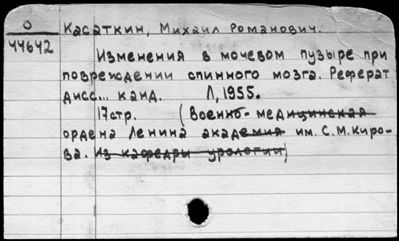 О Касаткин, Михаил Романович.
44642
Изменения в мочевом пузыре при
повреждении спинного мозга. Реферат
дисс... канд. Л, 1955.
17стр. (Военно-медицинская
ордена Ленина академия им. С.М.Киро-
ва. Из кафедры урологии)